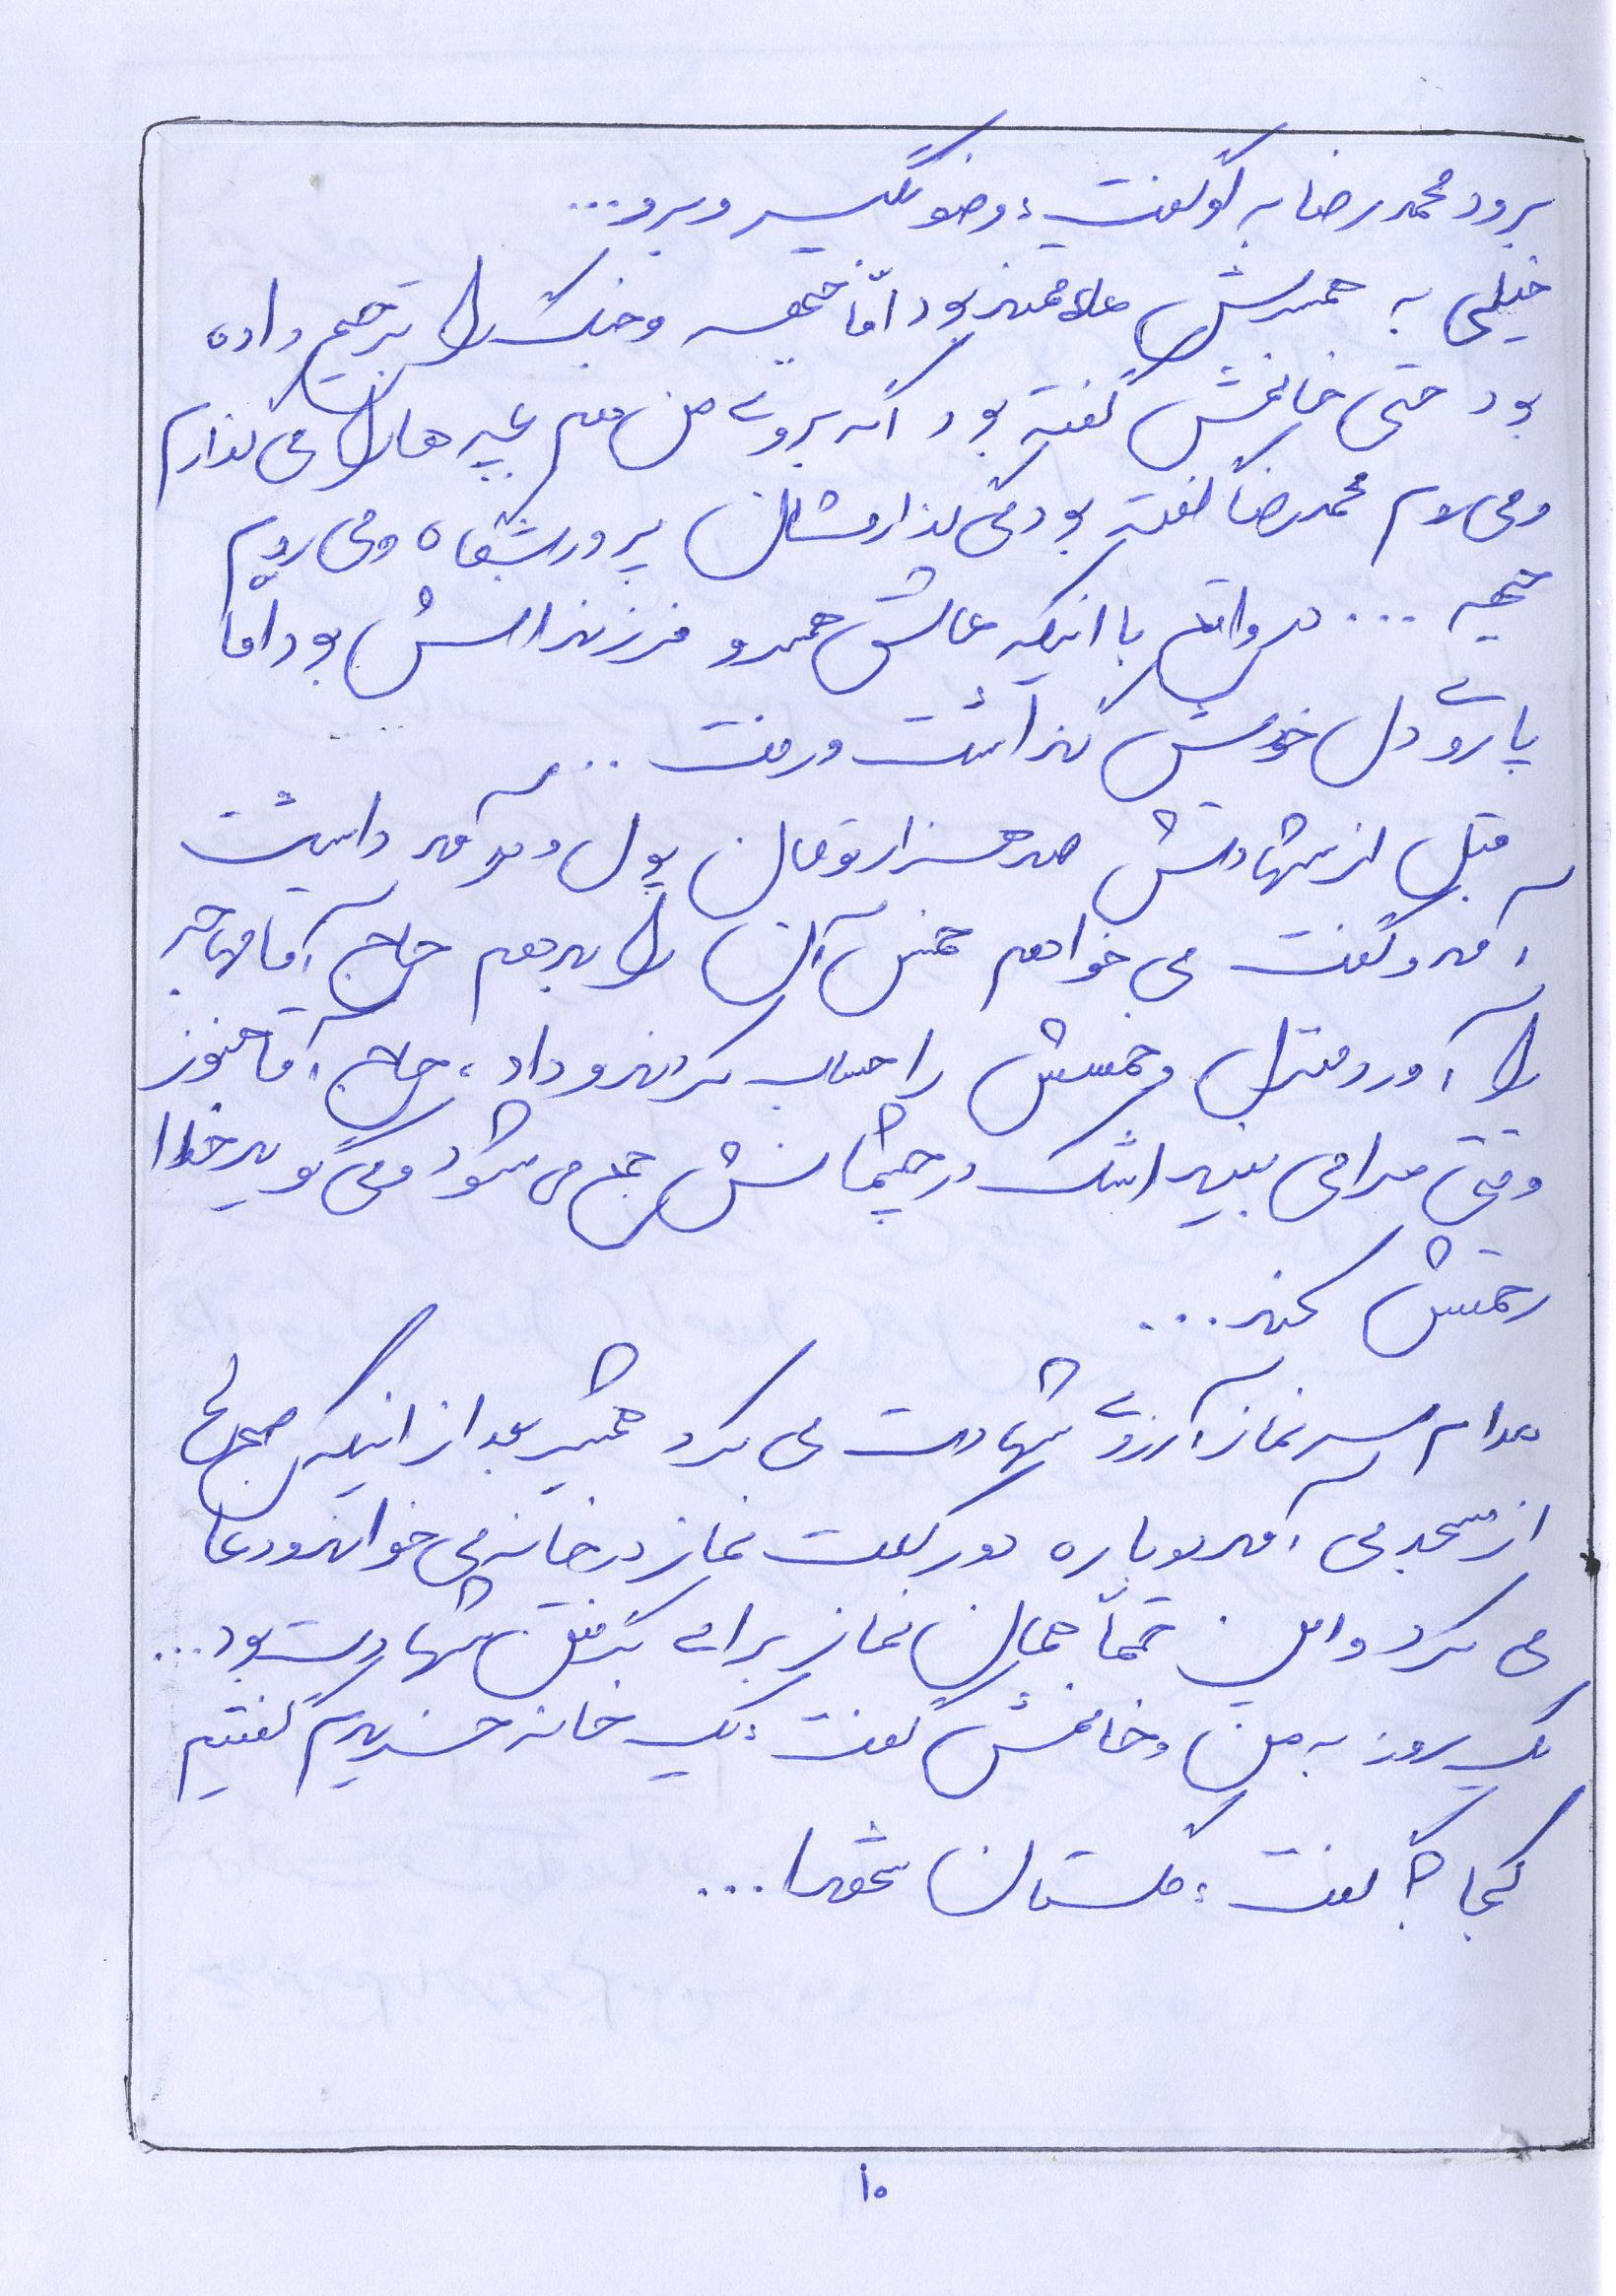 برود محمدرضا به او گفت: وضو بگیر و برو...
خیلی به همسرش علاقمند بود امّا جبهه و جنگ را ترجیح داده
بود حتی خانمش گفته بود اگه بروی من هم بچه ها را می گذارم
و می روم محمدرضا گفته بود می گذارمشان پرورشگاه و می روم
جبهه ... در واقع با اینکه عاشق همسر و فرزندانش بود امّا
پا روی دل خودش گذاشت و رفت ...
قبل از شهادتش صد هزار تومان پول درآمد داشت
آمد و گفت می خواهم خمس آن را بدهم حاج آقا مهاجر
را آورد منزل و خمسش را حساب کردند و داد، حاج آقا هنوز
وقتی مرا می بیند اشک در چشمانش جمع می شود و می گوید خدا
رحمتش کند...
مدام سر نماز آرزوی شهادت می کرد همیشه بعد از اینکه صبح
از مسجد می آمد دوباره دو رکعت نماز در خانه می خواند و دعا
می کرد و این حتماً همان نماز برای گرفتن شهادت بود...
یک روز به من و خانمش گفت: یک خانه خریدم گفتیم
کجا؟ گفت: گلستان شهدا...
۱۰